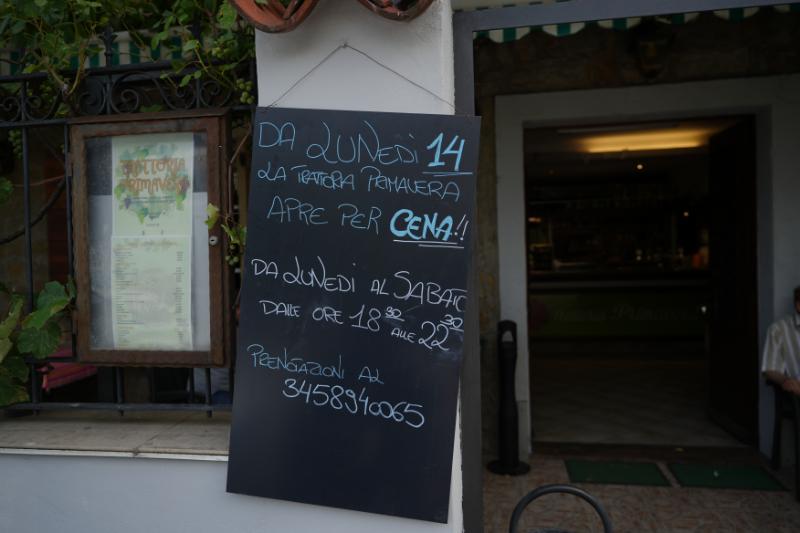 TRATTORIA
PRIMAVERA
DA LUNEDI 14
LA TRATTORIA PRIMAVERA
APRE PER CENA!!
DA LUNEDI AL SABATO
DALLE ORE 18 30 ALLE 22 30
PRENOTAZIONI AL
3458940065
Primavera